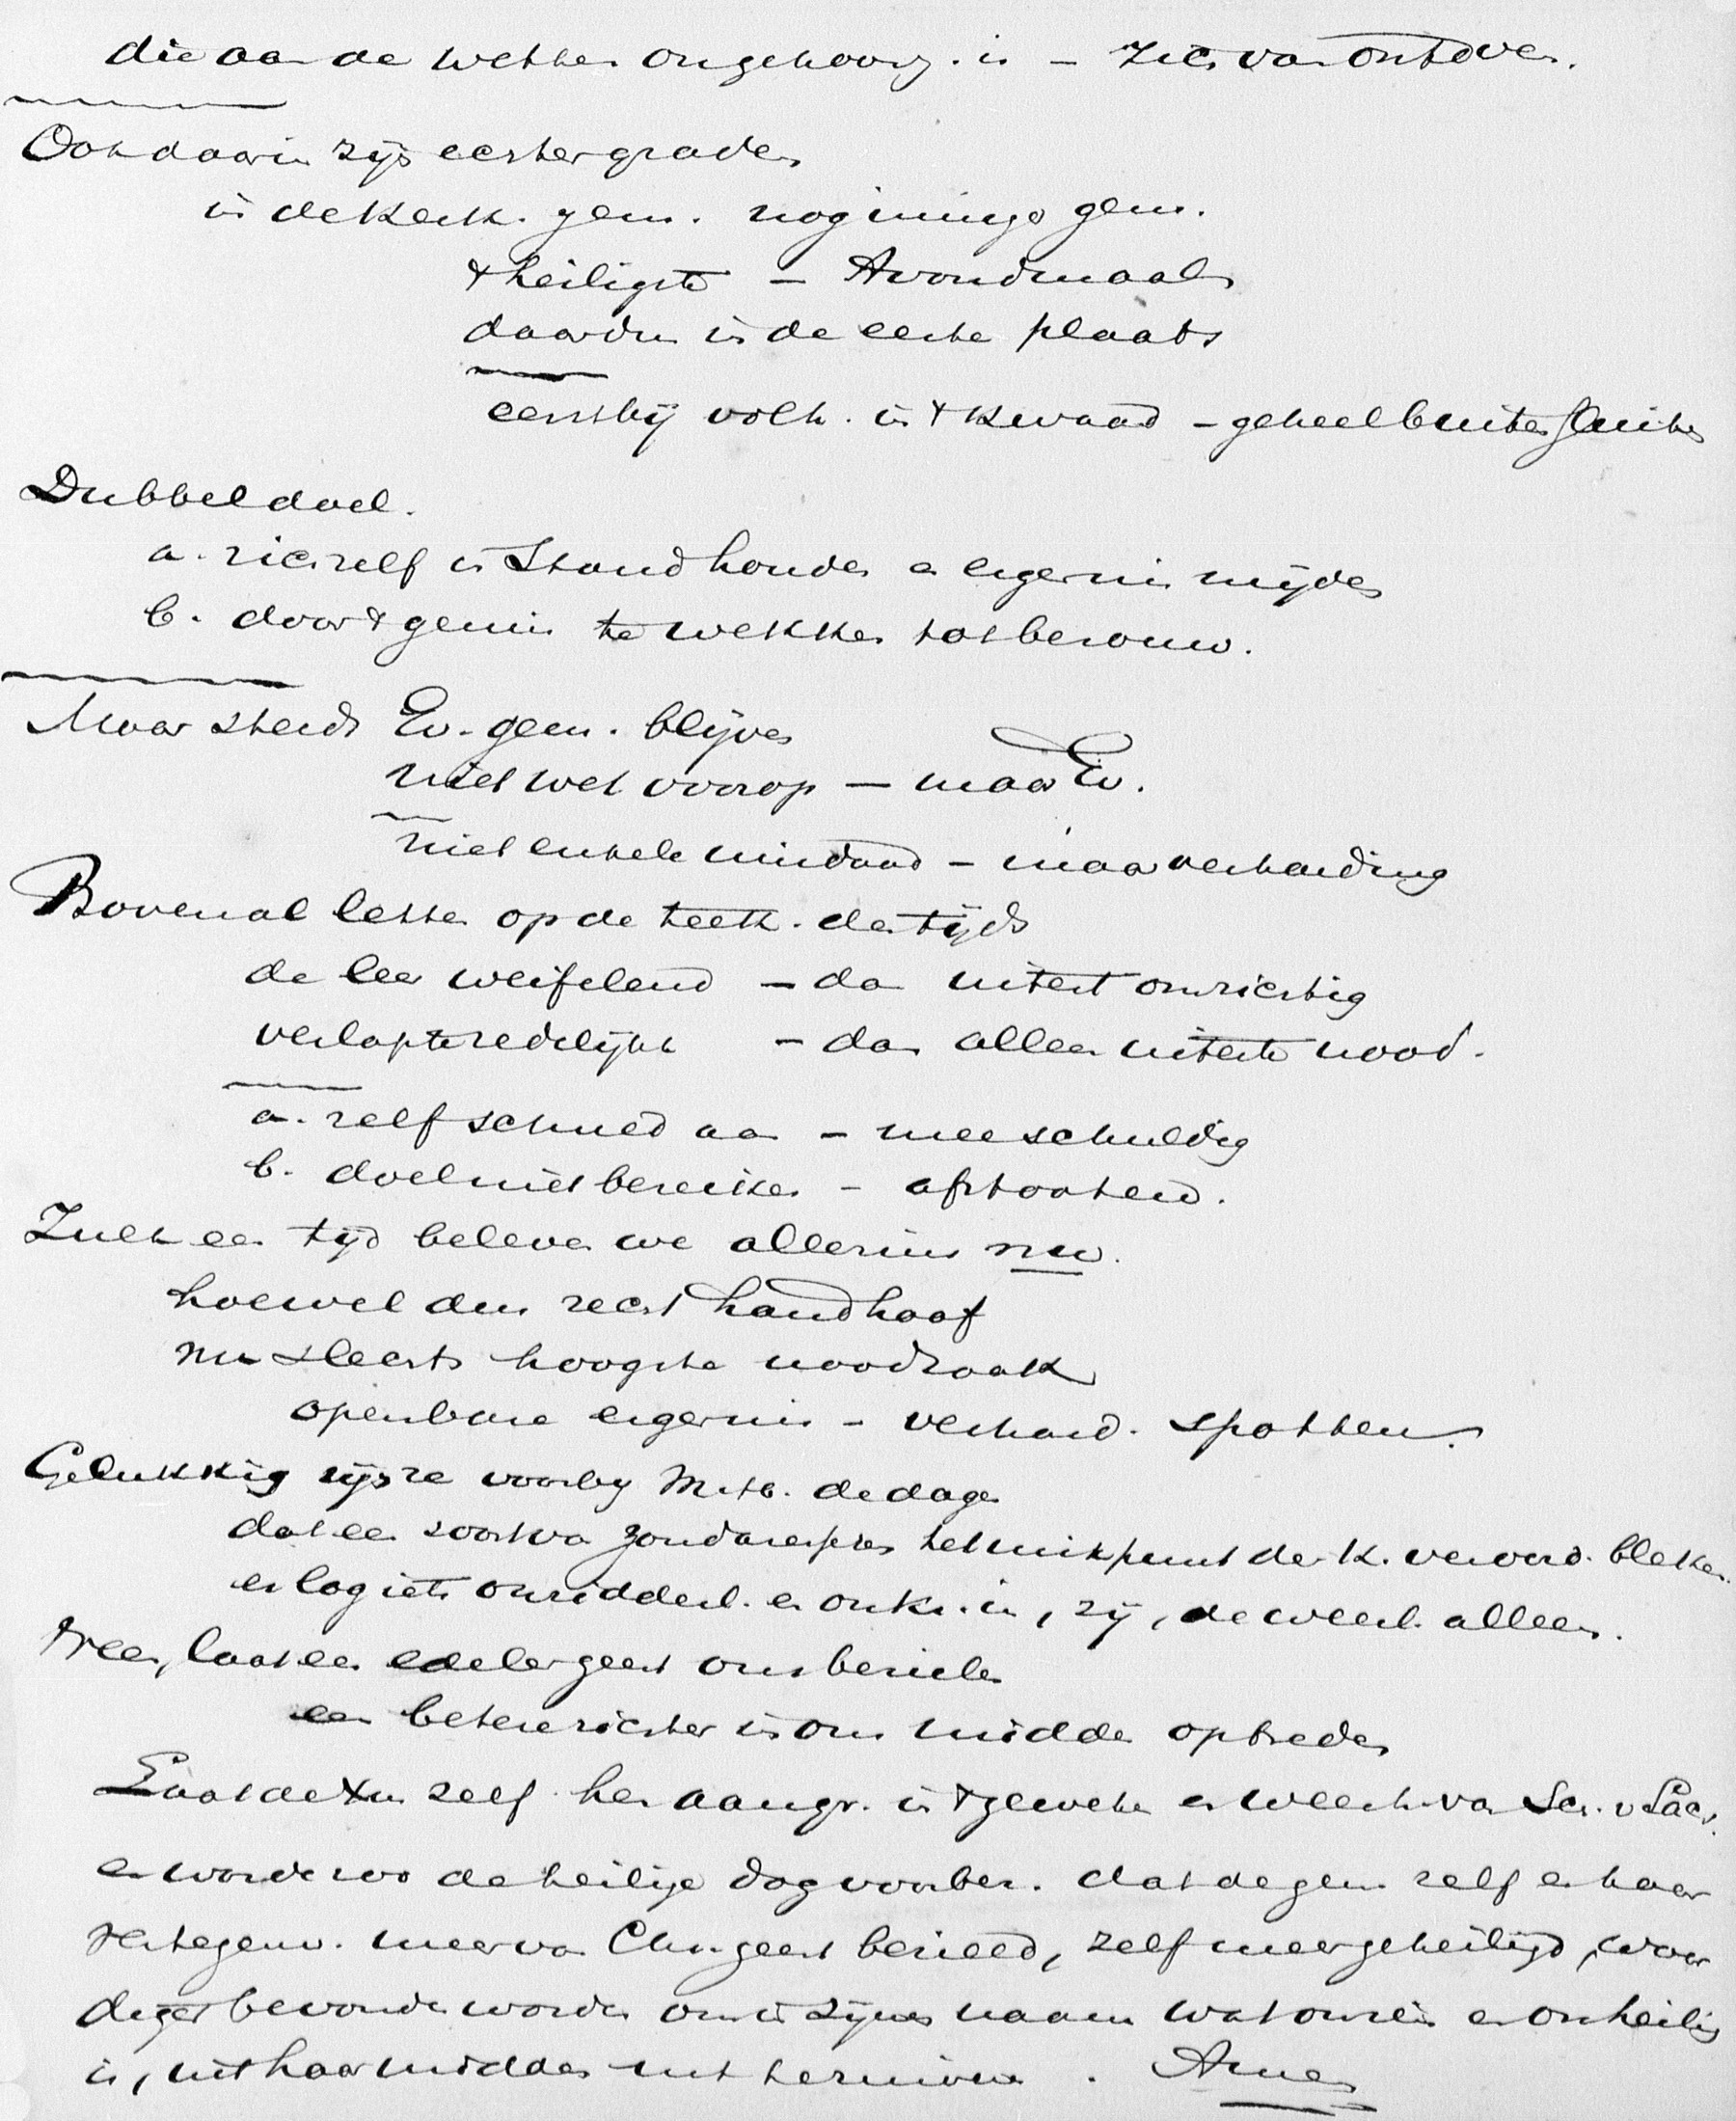 die aan de wetten ongehoorz. is – zich van ontdoen.
Ook daarin zijn echter graden
in de Kerk. gem. nog innige gem.
't heiligste – Avondmaal
daardn in de eerste plaats
eerst bij volh. in 't kwaad – geheel buitensluiten
Dubbel doel.
a. zichzelf in Stand houden en ergernis mijden
b. door 't gemis te wekken tot berouw.
Maar steeds Ev. gem. blijven
niet wet voorop – maar Ev.
niet enkele misdaad – maar verharding
Bovenal letten op de teek. des tijds
de leer weifelend – dan uiterst omzichtig
verlapte zedelijkh – dan alleen uiterste nood.
a. zelf schuld aan – meeschuldig
b. doel niet bereiken – afstootend.
Zulk een tijd beleven we allerminst nu.
hoewel dus recht handhaaf
nu slechts hoogste noodzaak
openbare ergernis – verhard. spotten.
Gelukkig zijn ze voorbij M. H. de dagen
dat een soort van het mikpunt der K. verwoed. bleken
er lag iets onridderl. en onkr. in, zij, de alleen.
Neen, laat een edeler geest ons bezielen
een betere richter in ons midden optreden
Laat de Xen zelf hen aangr. in 't geweten en v. Laer.
en worde zoo de heilige dag voorber. dat de gem. zelf en haar
vertegenw. meer van Chr. geest bezield, zelf meer geheiligd, waar
diger bevonden worden om in zijnen naam wat onrein en onheilig
is, uit haar midden uit te Amen